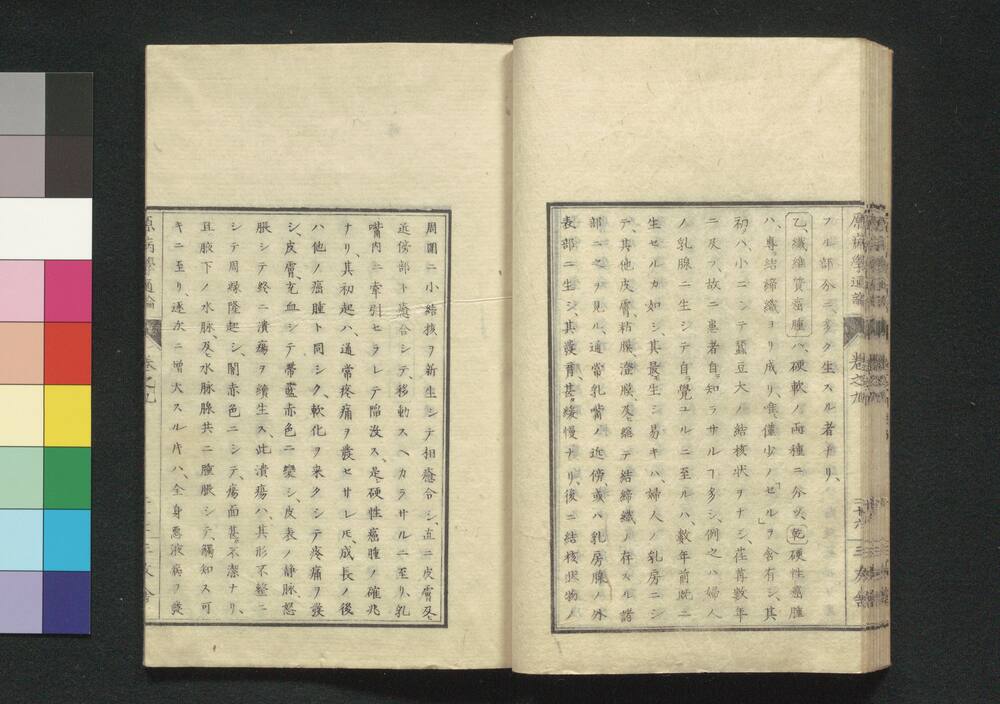 原病學通論
卷之九
二十六
三友舍
フル部分ニ多ク生スル者ナリ、
乙、纖維質癌腫ハ、硬軟ノ兩種ニ分ツ、乾硬性癌腫
ハ、專ラ結締織ヨリ成リ、唯僅少ノ「セル」ヲ含有シ、其
初ハ、小ニシテ蠶豆大ノ結核狀ヲナシ、荏苒數年
ニ及フ、故ニ患者自知ラサルヿ多シ、例之ハ婦人
ノ乳腺ニ生シテ自覺ユルニ至ルハ、數年前既ニ
生セルカ如シ、其最生シ易キハ、婦人ノ乳房ニシ
テ、其他皮膚、粘膜、澄膜、及總テ結締織ノ存スル諸
部ニ之ヲ見ル、通常乳嘴ノ近傍、或ハ乳房腺ノ外
表部ニ生シ、其發育甚緩慢ナリ、後ニ結核狀物ノ
周圍ニ小結核ヲ新生シテ相癒合シ、直ニ皮膚及
近傍部ト癒合シテ、移動スヘカラサルニ至リ、乳
嘴内ニ牽引セラレテ陷沒ス、是硬性癌腫ノ確兆
ナリ、其初起ハ、通常疼痛ヲ發セサレ𪜈、成長ノ後
ハ他ノ癌腫ト同シク、軟化ヲ來タシテ疼痛ヲ發
シ、皮膚充血シテ帶藍赤色ニ變シ、皮表ノ靜脉、怒
脹シテ終ニ潰瘍ヲ續生ス、此潰瘍ハ、其形不整ニ
シテ周緣隆起シ、闇赤色ニシテ、瘍面甚不潔ナリ、
且腋下ノ水脉、及水脉腺共ニ腫脹シテ、觸知ス可
キニ至リ、逐次ニ增大スル片ハ、全身惡液病ヲ發
原病學通論
卷之九